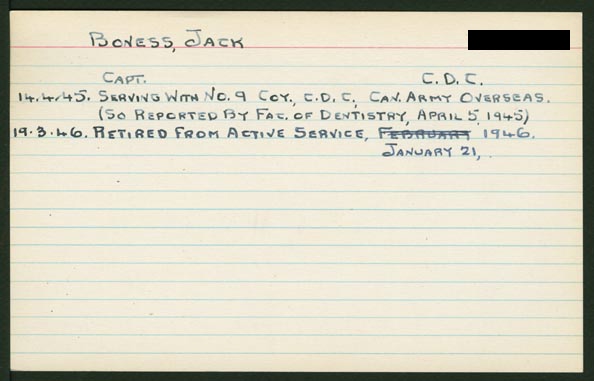 BONESS, JACK
CAPT. C.D.C.
14.4.45. SERVING WITH NO. 9 COY., C.D.C., CAN. ARMY OVERSEAS.
(SO REPORTED BY FAC. OF DENTISTRY, APRIL 5, 1945)
19.3.46. RETIRED FROM ACTIVE SERVICE, FEBRUARY 1946.
JANUARY 21,